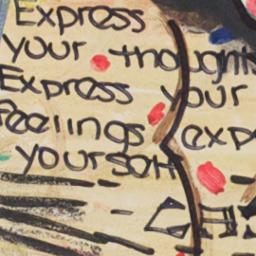 Express
your thoughts
Express your
feelings exp
yourself